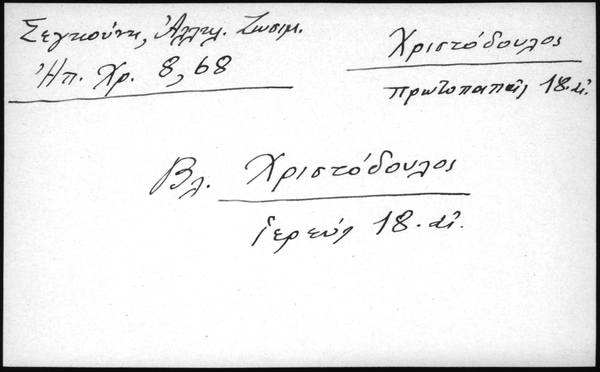 Σεγκούνη, Ἀλληλ. Ζωσιμ.
Ἠπ. Χρ. 8, 68
Χριστόδουλος
πρωτοπαπᾶς 18. αἰ.
Βλ. Χριστόδουλος
ἱερεύς 18. αἰ.